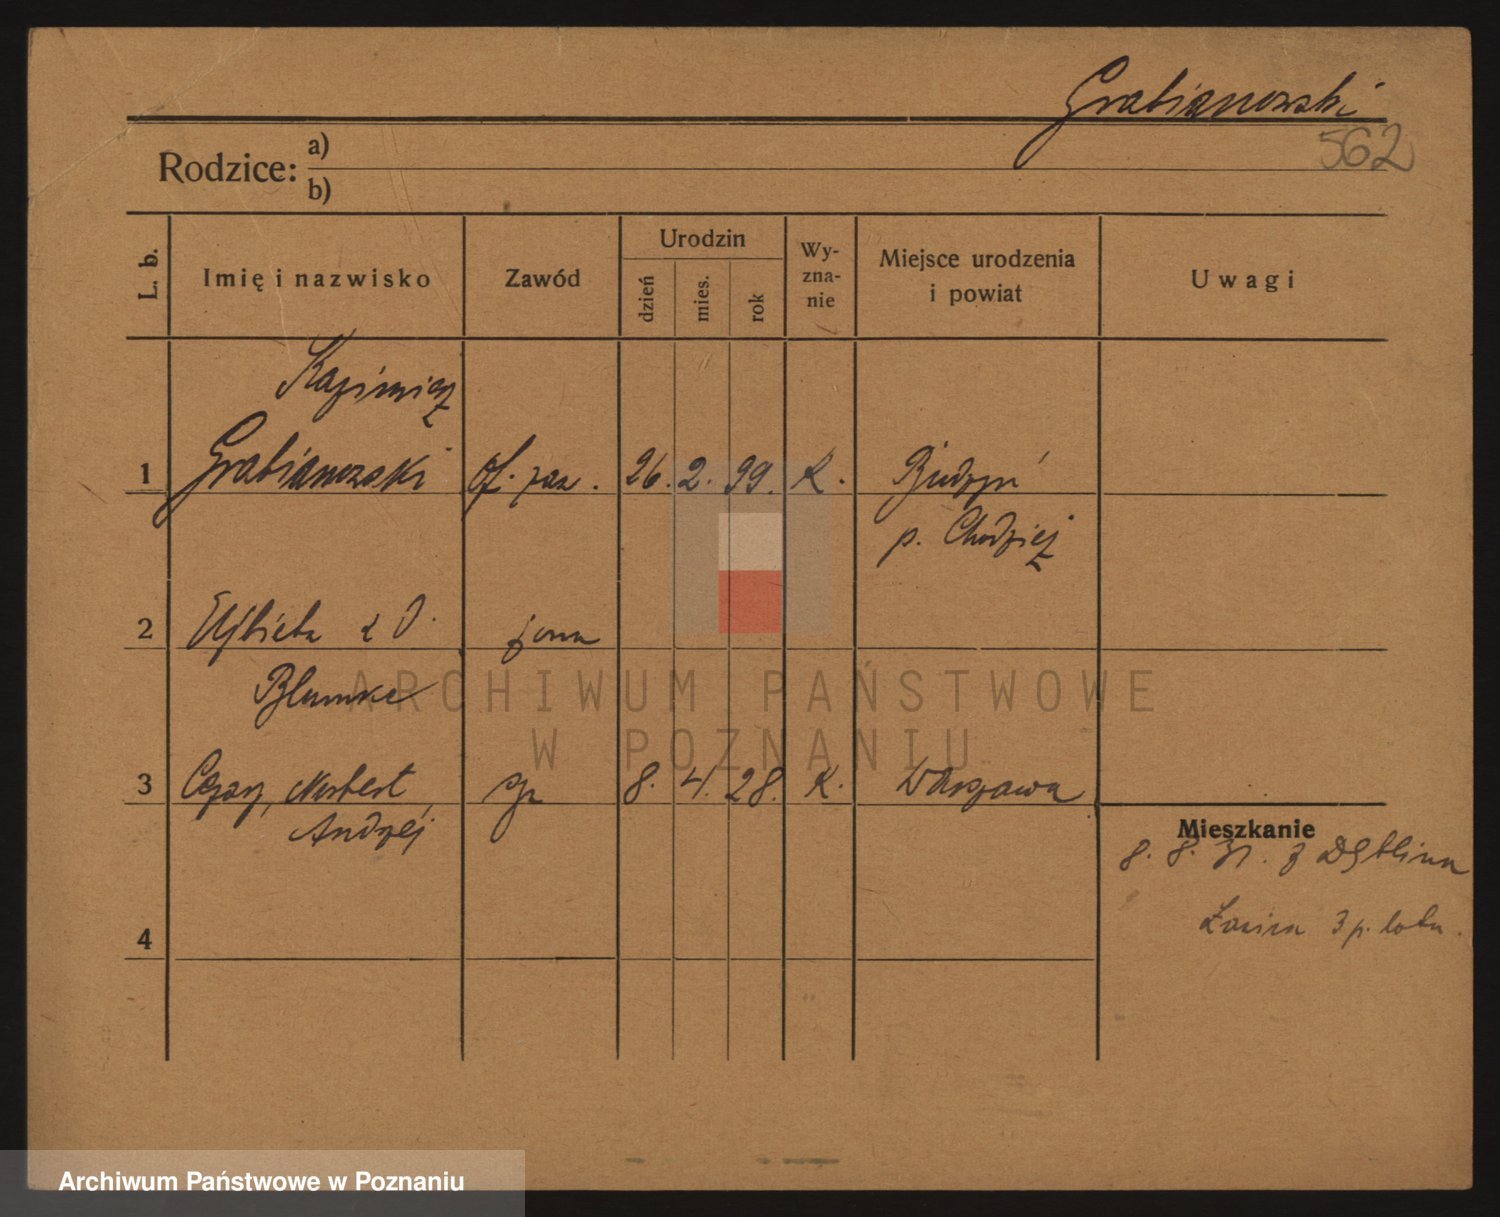 Grabianowski
562
Rodzice: a)
b)
L. b.
Imię i nazwisko
Zawód
Urodzin
dzień
mies.
rok
Wy-
zna-
nie
Miejsce urodzenia
i powiat
Uwagi
Kazimierz
1 Grabianowski of. zaw. 26. 2. 99. K. Budzyń
p. Chodzież
2 Elżbieta z d. żona
Blumke
3 Cezary, Norbert, sy 8. 4. 28. K. Warszawa
Andrzej
Mieszkanie
8. 8. 31. z Dęblina
Ławica 3 p. lotn.
4
ARCHIWUM PAŃSTWOWE
W POZNANIU
Archiwum Państwowe w Poznaniu